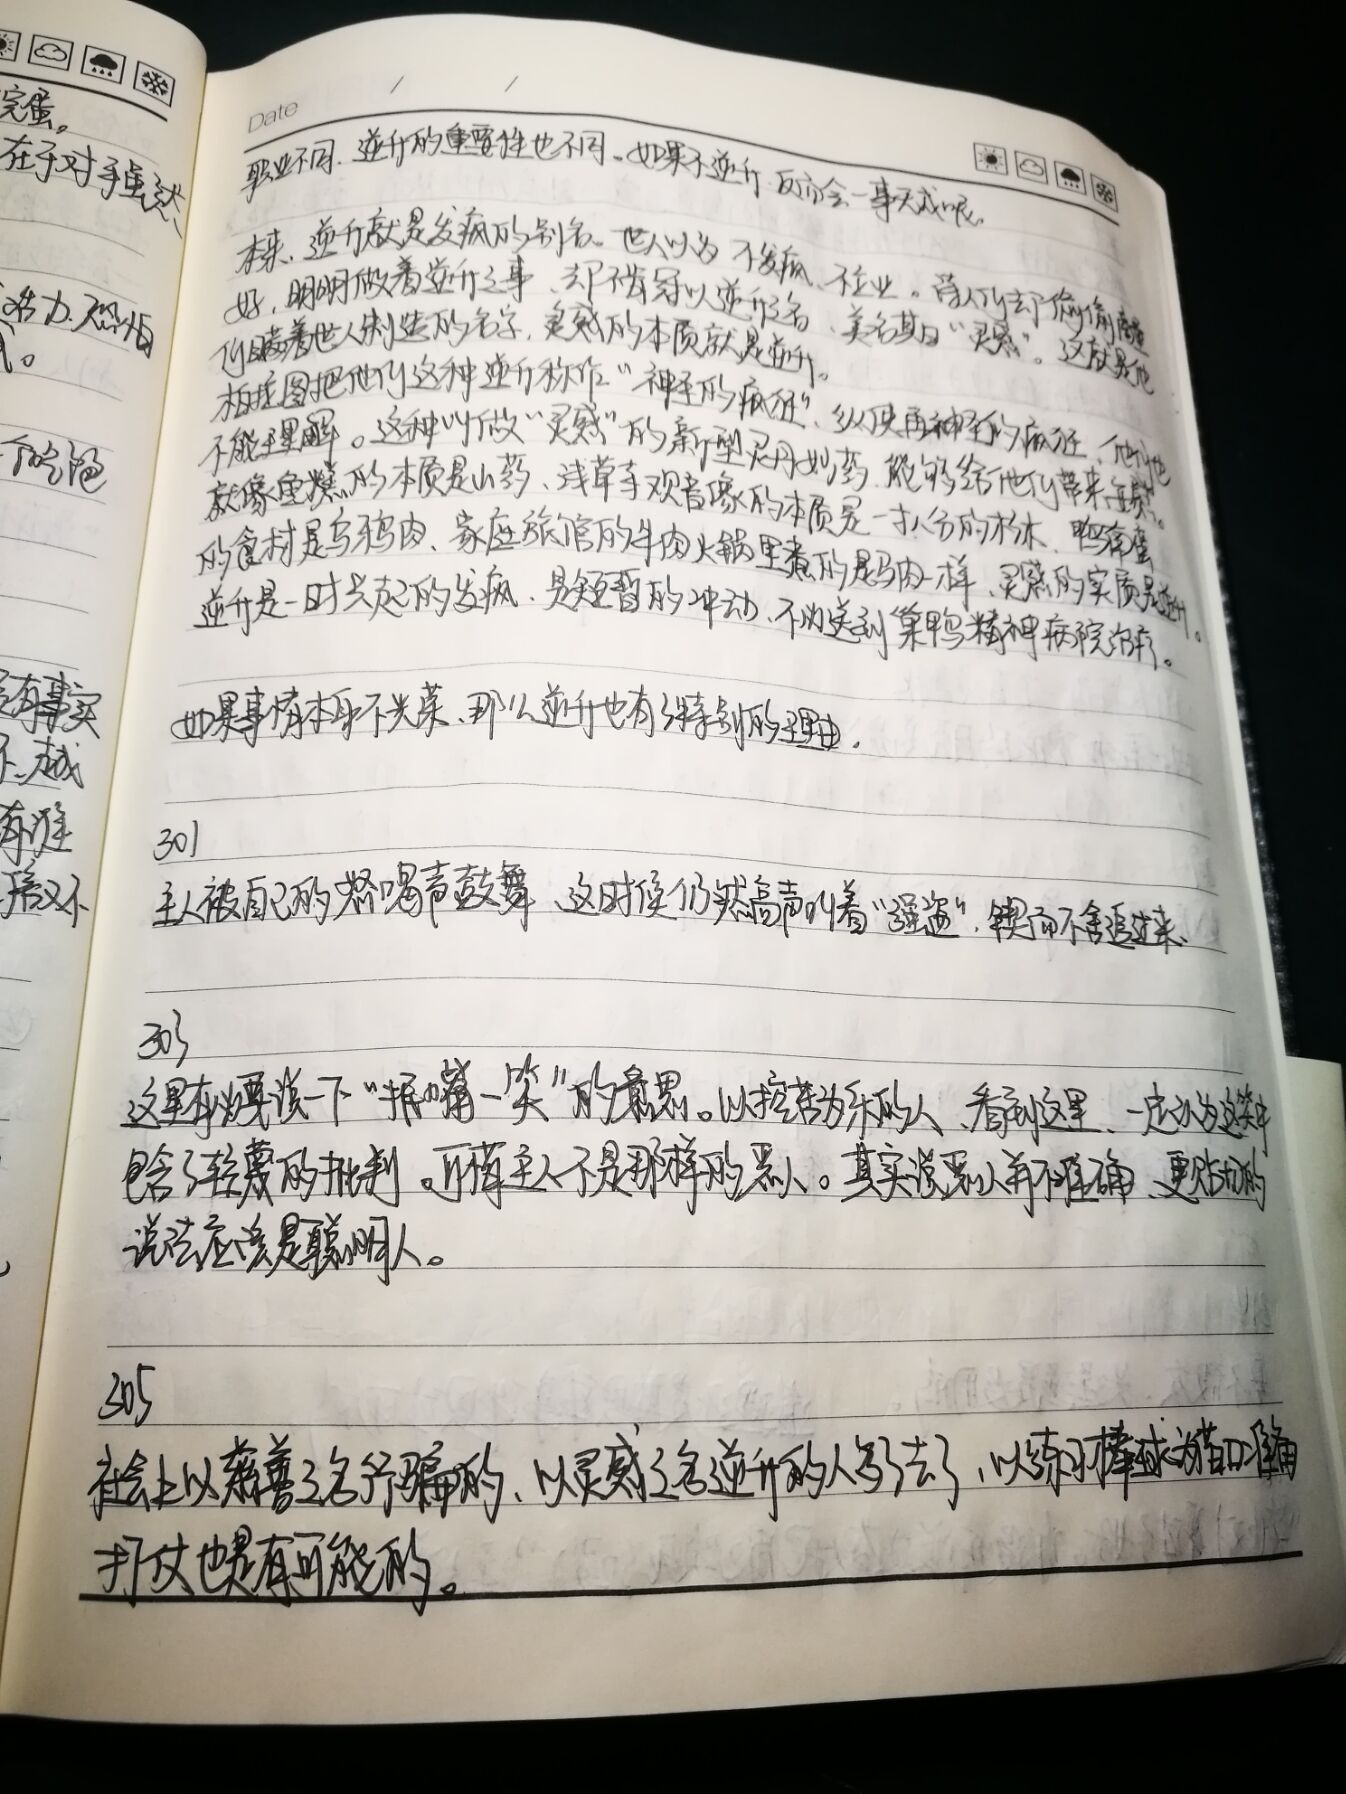 完蛋。
在于对手虽然
活力,恐怕
有事实
不、越
有谁
Date / /
职业不同、逆升的重要性也不同。如果不逆升、反而会一事无成呢。
本来、逆升就是发疯的别名。世人以为 不发疯、不在业。诗人们却偷偷
好,明明做着逆升之事、却不肯冠以逆升之名、美名其曰“灵感”。这就是他
们瞒着世人制造的名字,灵感的本质就是逆升。
柏拉图把他们这种逆升称作“神圣的疯狂”、纵使再神圣的疯狂、他们也
不能理解。这种叫做“灵感”的新型灵丹妙药、能够给他们带来
就像鱼糕的本质是山药、浅草寺观音像的本质是一寸八分的朽木、鸭南蛮
的食材是乌鸦肉、家庭旅馆的牛肉火锅里煮的是马肉一样、灵感的实质是逆升。
逆升是一时兴起的发疯、是短暂的冲动、不必送到巢鸭精神病院治疗。
如果事情本身不光荣、那么逆升也有了特别的理由。
301
主人被自己的怒喝声鼓舞、这时候仍然高声叫着“强盗”、锲而不舍追过来、
303
这里有必要谈一下“抿嘴一笑”的意思。以挖苦为乐的人、看到这里、一定认为这笑中
包含了轻蔑的批判。可惜主人不是那样的恶人。其实说恶人并不准确、更贴切的
说法应该是聪明人。
305
社会上以慈善之名行骗的、以灵感之名逆升的人多了去了、以练习棒球为借口准备
打仗也是有可能的。